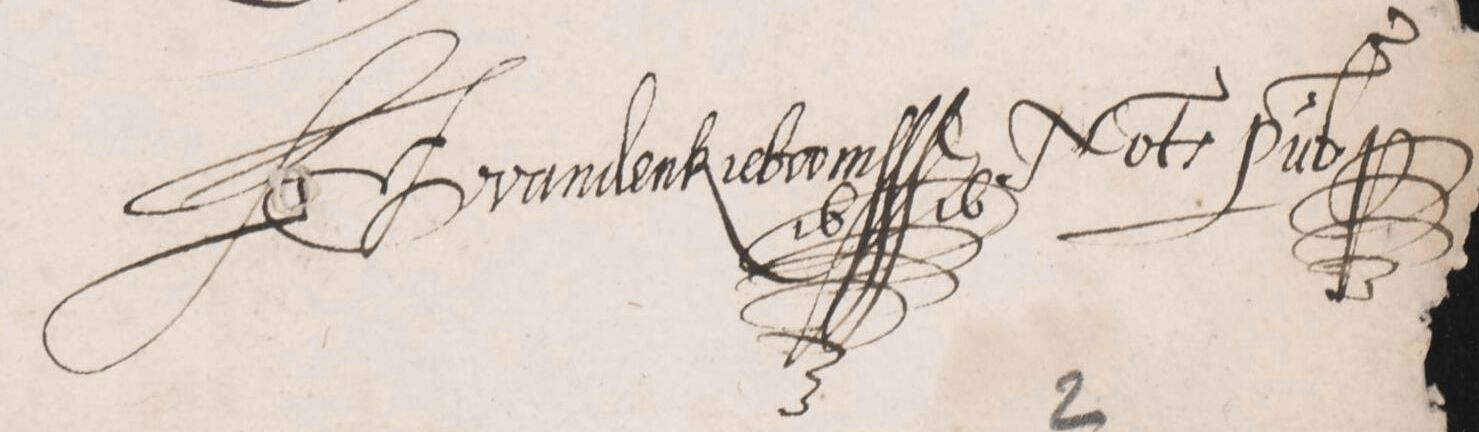 J vandenkieboom Not Pub
16 16
2